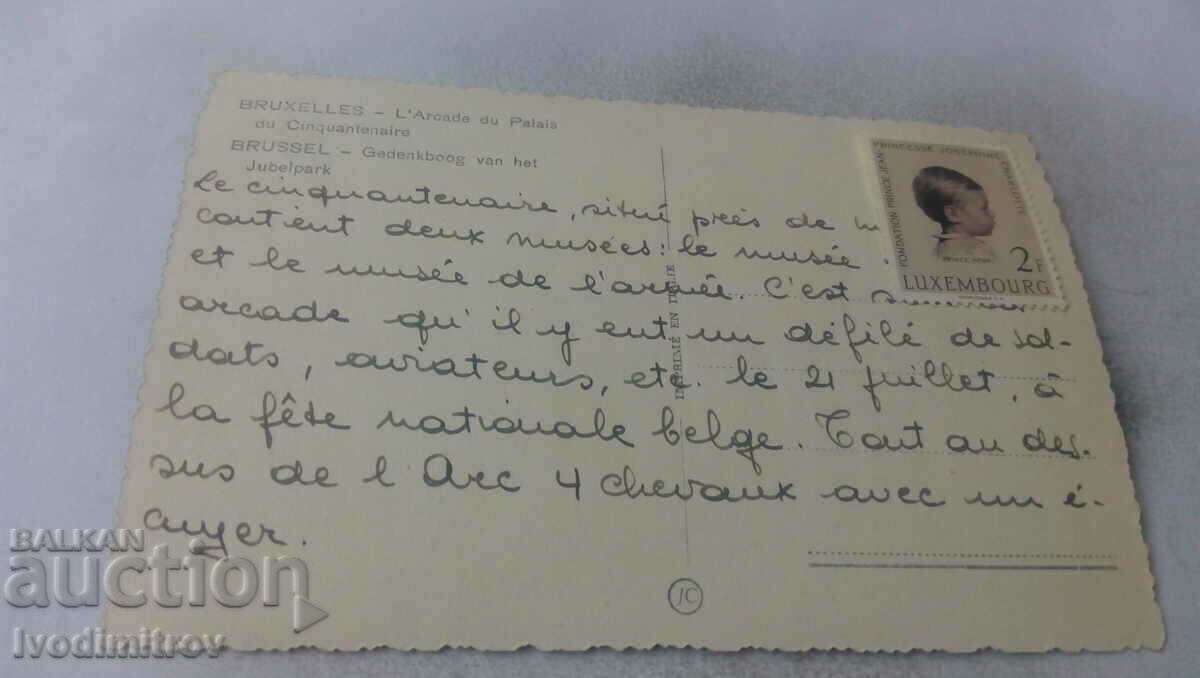 BRUXELLES – L'Arcade du Palais
du Cinquantenaire
BRUSSEL – Gedenkboog van het
Jubelpark
Le cinquantenaire, situé près de
contient deux musées: le musée
et le musée de l'armée. C'est
arcade qu'il y eut un défilé de sol-
dats, aviateurs, etc. le 21 juillet, à
la fête nationale belge. Tout au des-
sus de l'Arc 4 chevaux avec un é-
cuyer.
IMPRIMÉ EN ITALIE
JC
PRINCESSE JOSÉPHINE-
CHARLOTTE
FONDATION PRINCE JEAN
PRINCE HENRI
2F
LUXEMBOURG
BALKAN
auction
Ivodimitrov